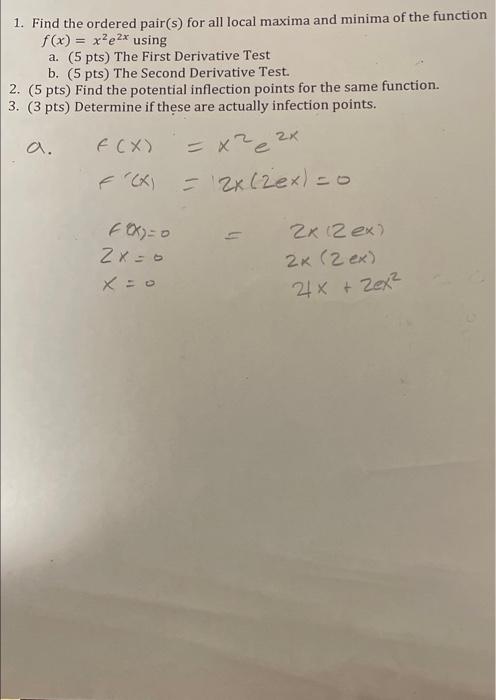 1. Find the ordered pair(s) for all local maxima and minima of the function
f(x) = x²e²ˣ using
a. (5 pts) The First Derivative Test
b. (5 pts) The Second Derivative Test.
2. (5 pts) Find the potential inflection points for the same function.
3. (3 pts) Determine if these are actually infection points.
a. F(X) = x²e²ˣ
F'(X) = 2x(2ex) = 0
F(X)=0 = 2x(2ex)
2x=0 2x(2ex)
x=0 4x + 2ex²